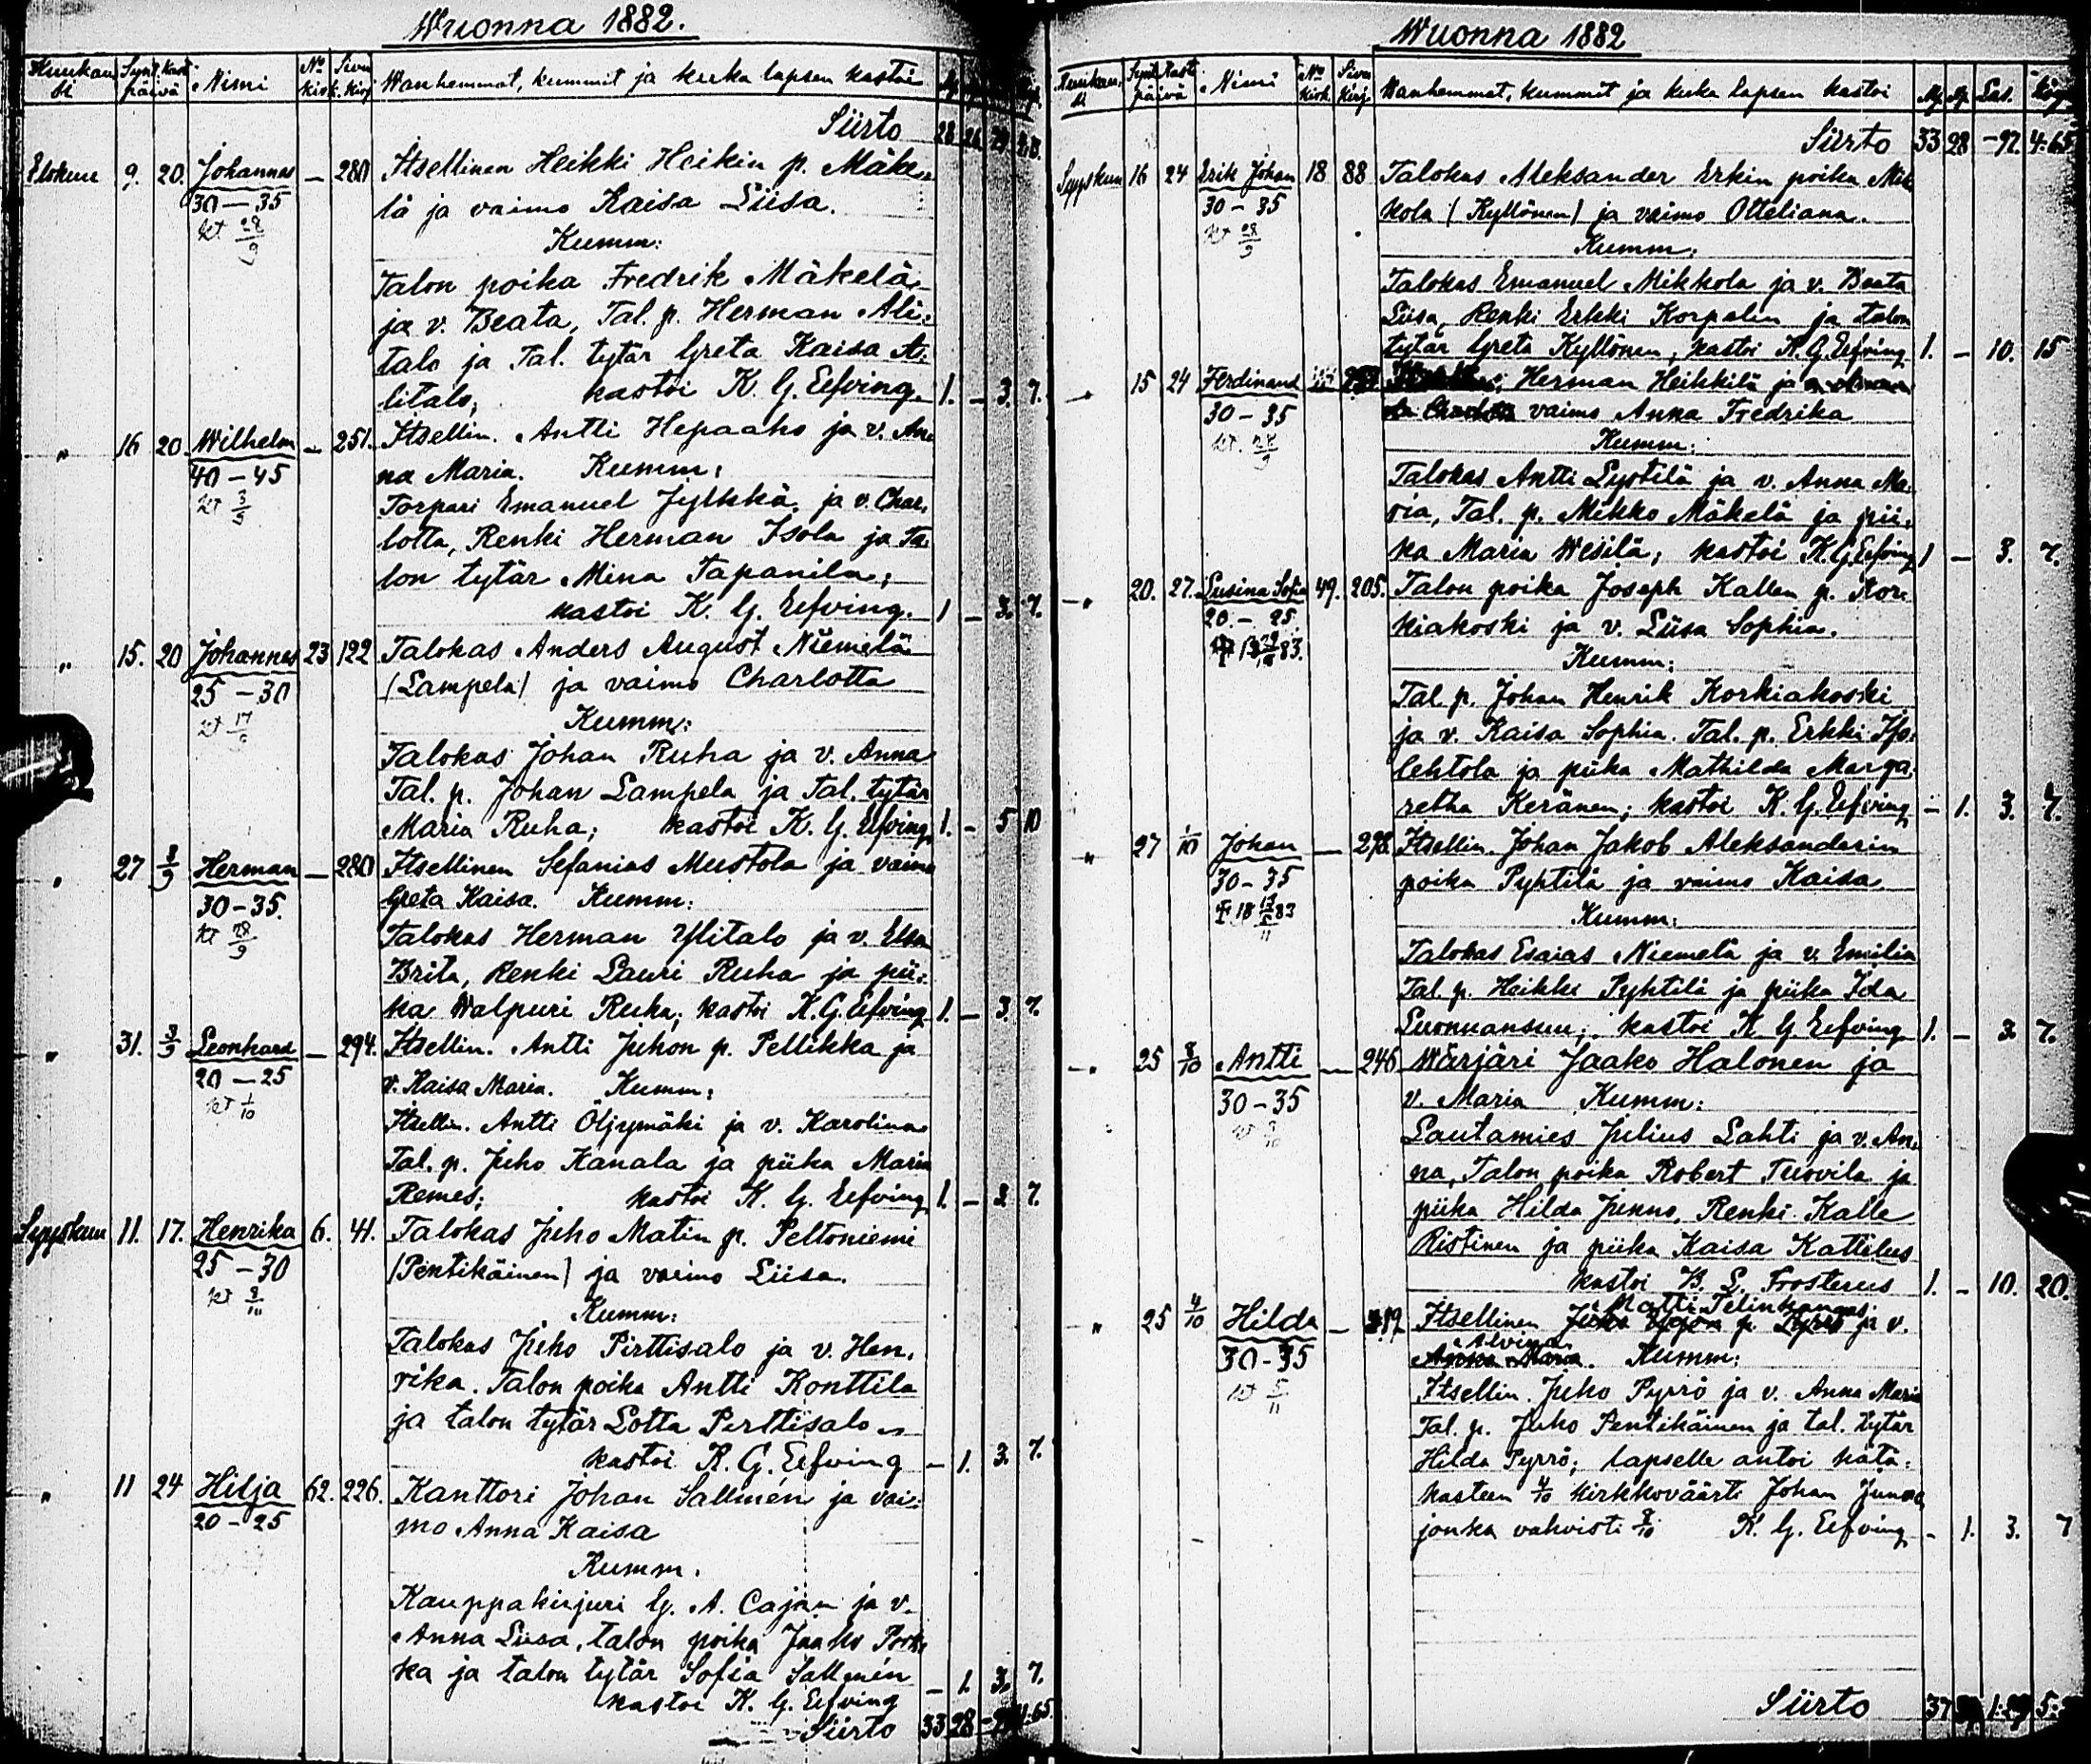 Wuonna 1882.
Kuukausi Synt. Kast. päivä Nimi No kirk. Sivu kirj. Wanhemmat, kummit ja kuka lapsen kastoi
Siirto 28 26
Elokuu 9. 20. Johannes — 280 Itsellinen Heikki Heikin p. Mäke-
30–35 lä ja vaimo Kaisa Liisa.
kt 28/9 Kumm:
Talon poika Fredrik Mäkelä
ja v. Beata, Tal. p. Herman Ali-
talo ja Tal. tytär Greta Kaisa A-
litalo; kastoi K. G. Eefving. 1. – 3. 7.
„ 16 20. Wilhelm — 251. Itsellin. Antti Hepaaho ja v. An-
40–45 na Maria. Kumm:
kt 3/9 Torpari Emanuel Jylkkä, ja v. Char-
lotta, Renki Herman Isola ja Ta-
lon tytär Mina Tapanila;
kastoi K. G. Eefving. 1 – 3. 7.
„ 15. 20 Johannes 23 122 Talokas Anders August Niemelä
25–30 (Lampela) ja vaimo Charlotta
kt 17/9 Kumm:
Talokas Johan Ruha ja v. Anna
Tal. p. Johan Lampela ja Tal. tytär
Maria Ruha; kastoi K. G. Eefving. 1. – 5 10
„ 27 3/9 Herman — 280 Itsellinen Sefanias Mustola ja vaimo
30–35. Greta Kaisa. Kumm:
kt 28/9 Talokas Herman Ylitalo ja v. Elsa
Brita, Renki Lauri Ruha ja pii-
ka Walpuri Ruha; kastoi K. G. Eefving 1. – 3. 7.
„ 31. 3/9 Leonhard — 294. Itsellin. Antti Juhon p. Pellikka ja
20–25 v. Kaisa Maria. Kumm:
kt 1/10 Itsellin. Antti Öljymäki ja v. Karolina
Tal. p. Juho Kanala ja piika Maria
Remes; kastoi K. G. Eefving 1. – 3 7.
Syyskuu 11. 17. Henrika 6. 41. Talokas Juho Matin p. Peltoniemi
25–30 (Pentikäinen) ja vaimo Liisa.
kt 8/10 Kumm:
Talokas Juho Pirttisalo ja v. Hen-
rika. Talon poika Antti Konttila
ja talon tytär Lotta Perttisalo
kastoi K. G. Eefving – 1. 3. 7.
„ 11 24 Hilja 62. 226. Kanttori Johan Sallmén ja vai-
20–25 mo Anna Kaisa
Kumm.
Kauppakirjuri G. A. Cajan ja v.
Anna Liisa, talon poika Jaako
ka ja talon tytär Sofia Sallmén – 1. 3. 7.
kastoi K. G. Eefving
Siirto 33 28
Wuonna 1882
Kuukausi Synt. Kast. päivä Nimi No kirk. Sivu kirj. Wanhemmat, kummit ja kuka lapsen kastoi Mp. Np. Las.
Siirto 33 28 –92. 4:65
Syyskuu 16 24 Erik Johan 18 88 Talokas Aleksander Erkin poika Mik
30–35 kola (Kyllönen) ja vaimo Otteliana.
kt 28/9 Kumm.
Talokas Emanuel Mikkola ja v. Beata
Liisa, Renki Erkki Korpelin ja talon
tytär Greta Kyllönen, kastoi K. G. Eefving 1. – 10. 15
„ 15 24 Ferdinand Herman Heikkilä ja
30–35 vaimo Anna Fredrika
kt. 28/9 Kumm:
Talokas Antti Lystilä ja v. Anna Ma-
ria, Tal. p. Mikko Mäkelä ja pii-
ka Maria Wesilä; kastoi K. G. Eefving 1 – 3. 7.
„ 20. 27. Lusina Sofia 49. 205. Talon poika Joseph Kallen p. Kor-
20–25. kiakoski ja v. Liisa Sophia.
Kumm:
Tal. p. Johan Henrik Korkiakoski
ja v. Kaisa Sophia. Tal. p. Erkki Iso-
lehtola ja piika Mathilda Marga-
retha Keränen; kastoi K. G. Eefving – 1. 3. 7.
„ 27 1/10 Johan — 278. Itsellin. Johan Jakob Aleksanderin
30–35 poika Pyhtilä ja vaimo Kaisa
Kumm:
Talokas Esaias Niemelä ja v. Emilia
Tal. p. Heikki Pyhtilä ja piika Ida
Luonuansuu; kastoi K. G. Eefving 1. – 3. 7.
„ 25 8/10 Antti — 246 Wärjäri Jaako Halonen ja
30–35 v. Maria Kumm:
Lautamies Julius Lahti ja v. An-
na, Talon poika Robert Tuovila ja
piika Hilda Junno, Renki Kalle
Ristinen ja piika Kaisa Kattilus
kastoi B. L. Frosterus 1. – 10. 20.
„ 25 4/10 Hilda — 319 Itsellinen Matti Pelinkangas ja v.
30–35 Alvina. Kumm:
kt 5/11 Itsellin. Juho Pyrrö ja v. Anna Maria
Tal. p. Juho Pentikäinen ja tal. tytär
Hilda Pyrrö; lapselle antoi hätä-
kasteen 4/10 kirkkoväärti Johan Junno,
jonka vahvisti 8/10 K. G. Eefving – 1. 3. 7
Siirto 37